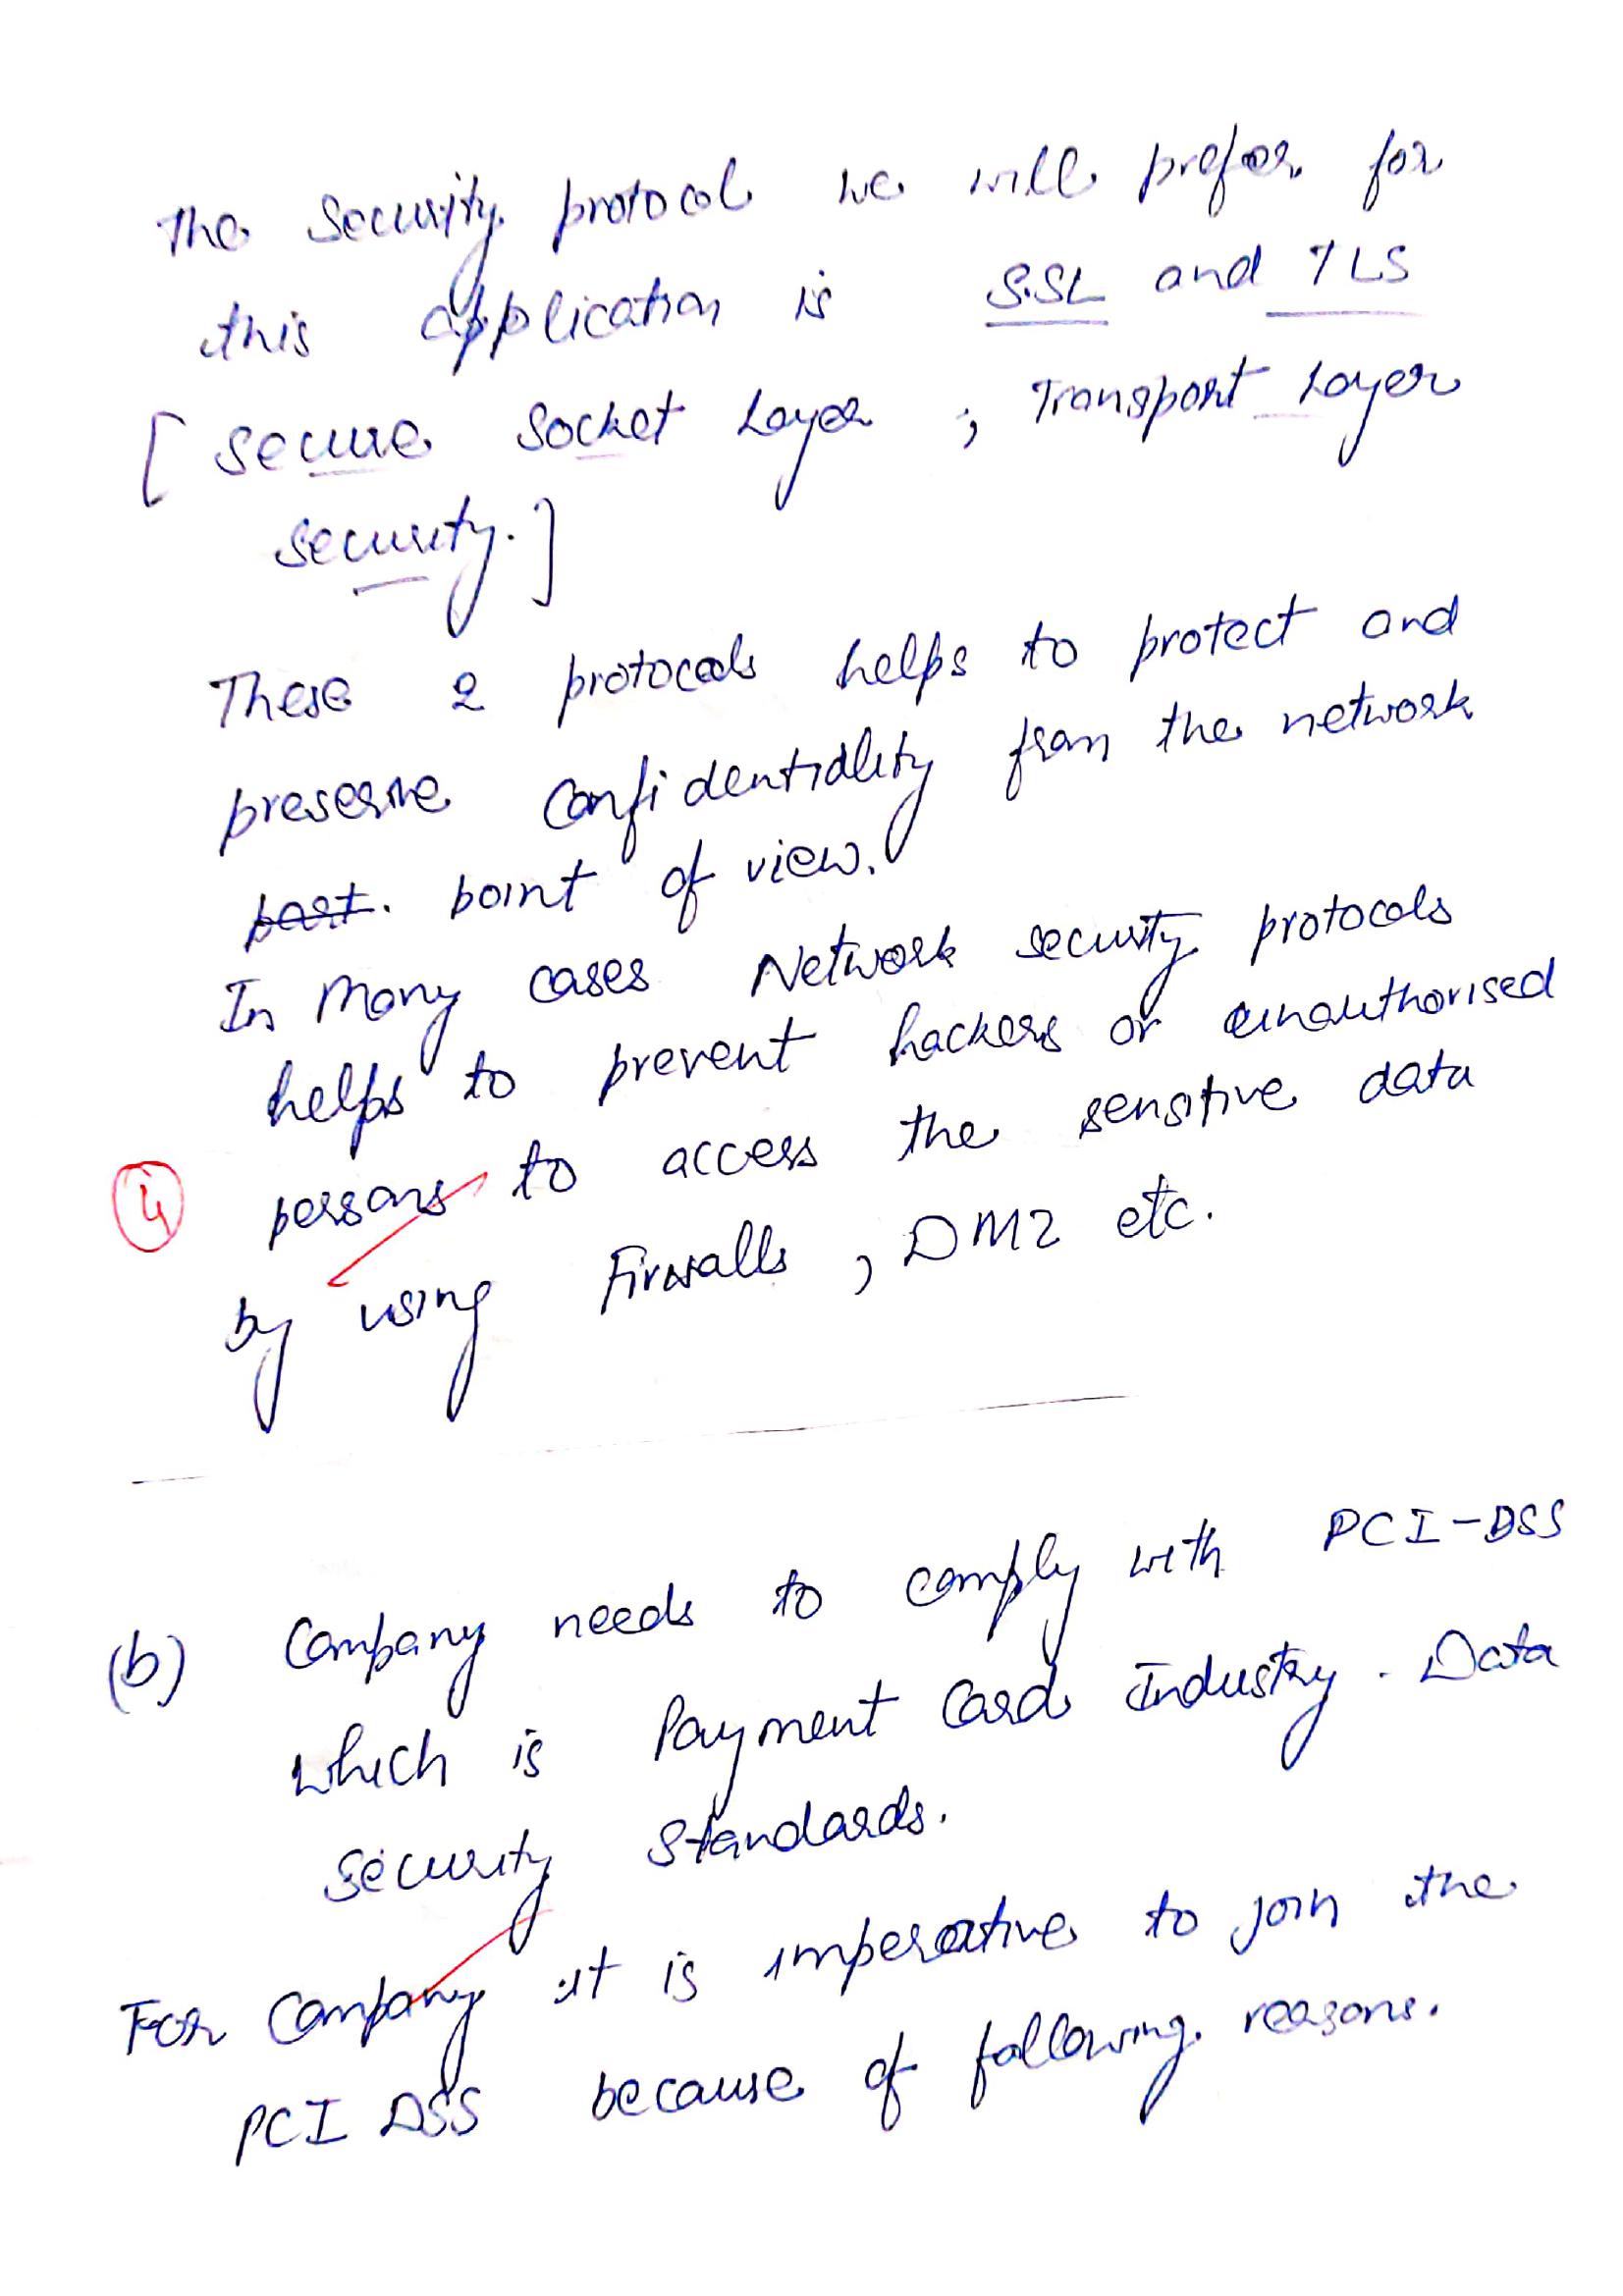 The Security protocol we will prefer for
this application is SSL and TLS
[ Secure Socket Layer ; Transport Layer
Security. ]
These 2 protocols helps to protect and
preserve Confidentiality from the network
point of view.
In Many cases Network security protocols
helps to prevent hackers or unauthorised
persons to access the sensitive data
by using Firewalls , DMZ etc.
(b) Company needs to comply with PCI-DSS
which is Payment Card Industry . Data
Security Standards.
For Company it is imperative to join the
PCI DSS because of following reasons.